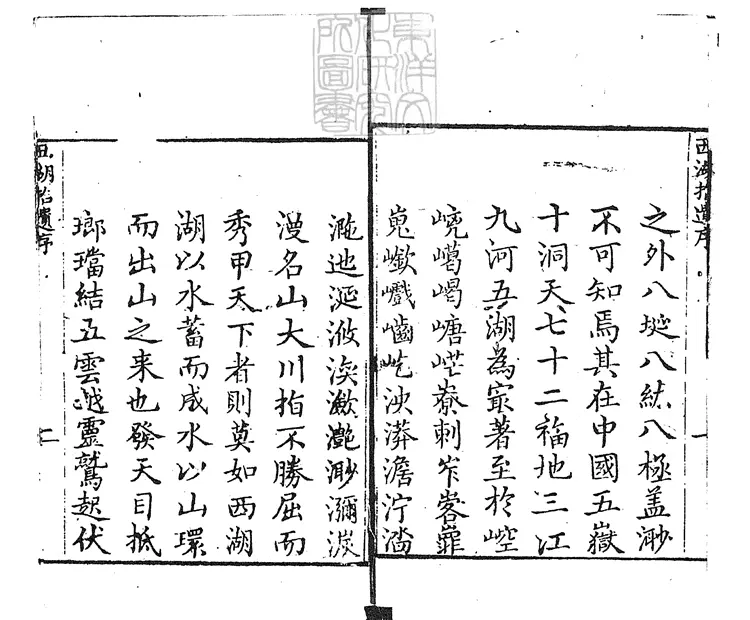 東洋文
化研究
所圖書
西湖拾遺序
一
之外八埏八紘八極盖渺
不可知焉其在中國五嶽
十洞天七十二福地三江
九河五湖為㝡著至於崆
嶢嶱嵑嵣㟐嶚剌岝峉
嵬嶔巇屹泱漭澹泞
瀲灧渺瀰
漫名山大川指不勝屈而
秀甲天下者則莫如西湖
湖以水蓄而成水以山環
而出山之来也發天目抵
瑯璫結五雲越靈鷲起伏
西湖拾遺序
二